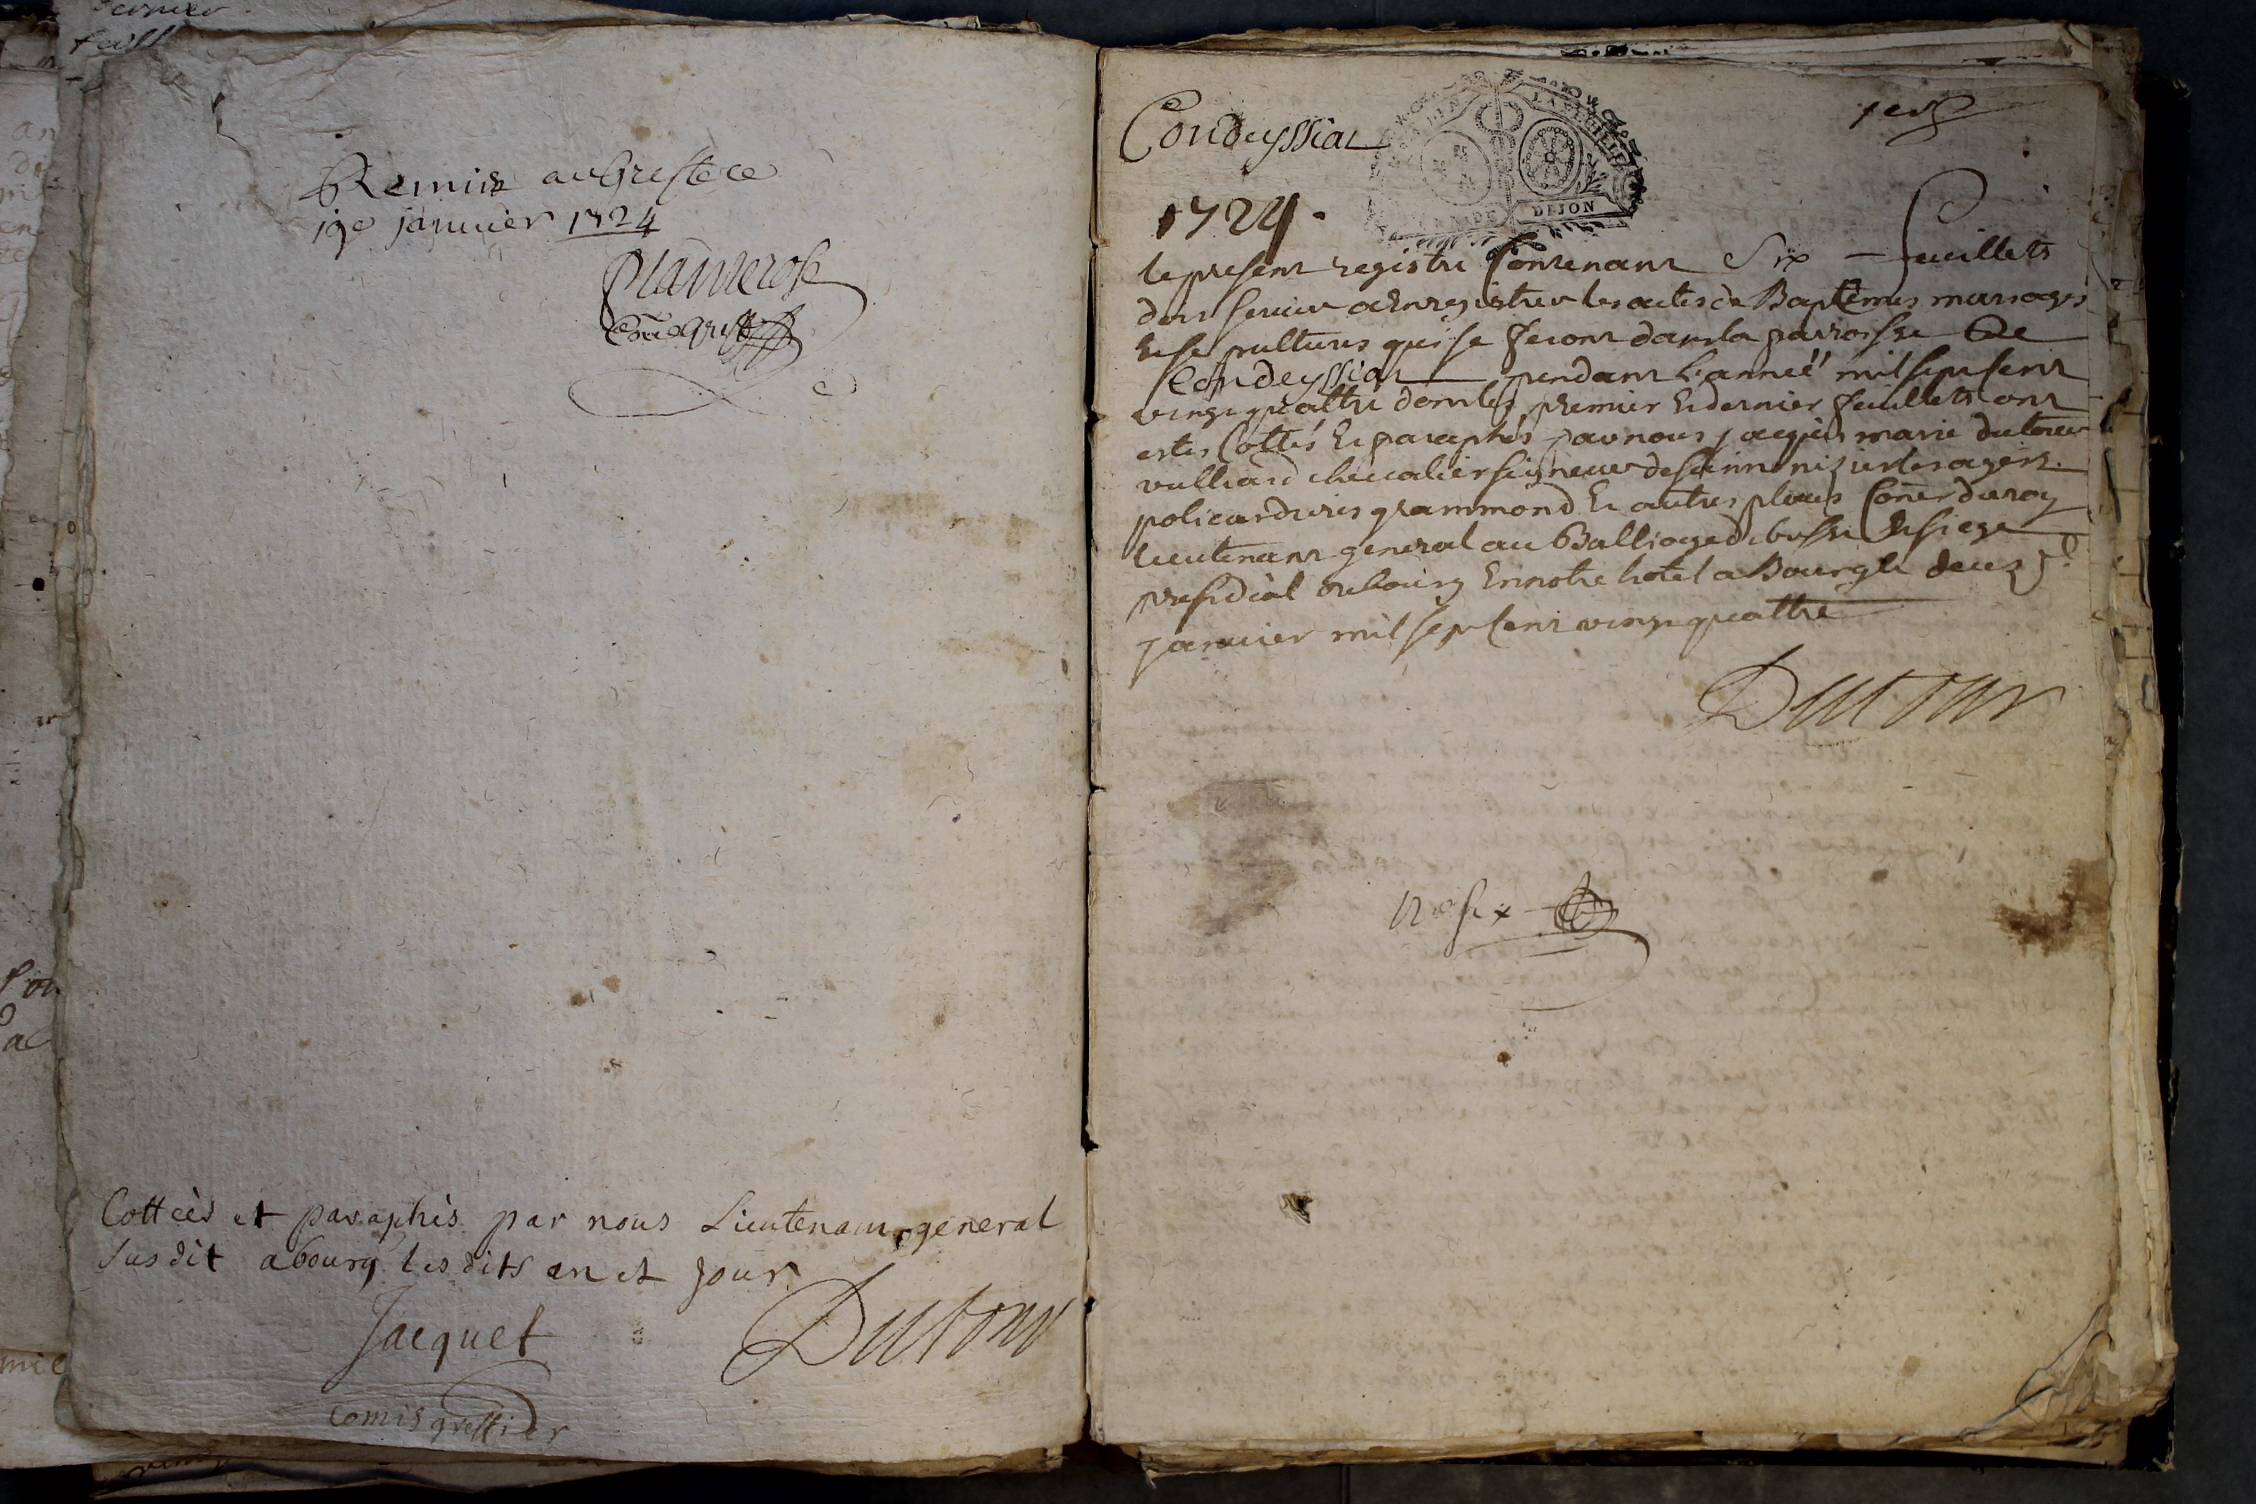 Remis au Greffe ce
19e janvier 1724
Comis Greff
Cottéès et paraphés par nous Lieutenant general
susdit a bourg les dits an et jour
Jacquet
Dutour
comis greffier
Condeyssiat
1er
1724.
DIJON
le present registre Contenant Six feuillets
dois servir a Enregistrer les actes de Baptêmes mariages
Et sepultures qui se feront dans la parroisse De
Condeyssiat pendant L'anneé mil sept Cent
vingt quattre dont les premier Et dernier feuillets ont
estes Cottés Et paraphés par nous jacques marie dutour
vulliard chevalier seigneur de saint nizier
grammond Et autres places Coner du roy
lieutenant general au Balliage de bresse Et siege
presidial de bourg En notre hotel a Bourg le deux
janvier mil sept Cent vingt quattre
Dutour
No six